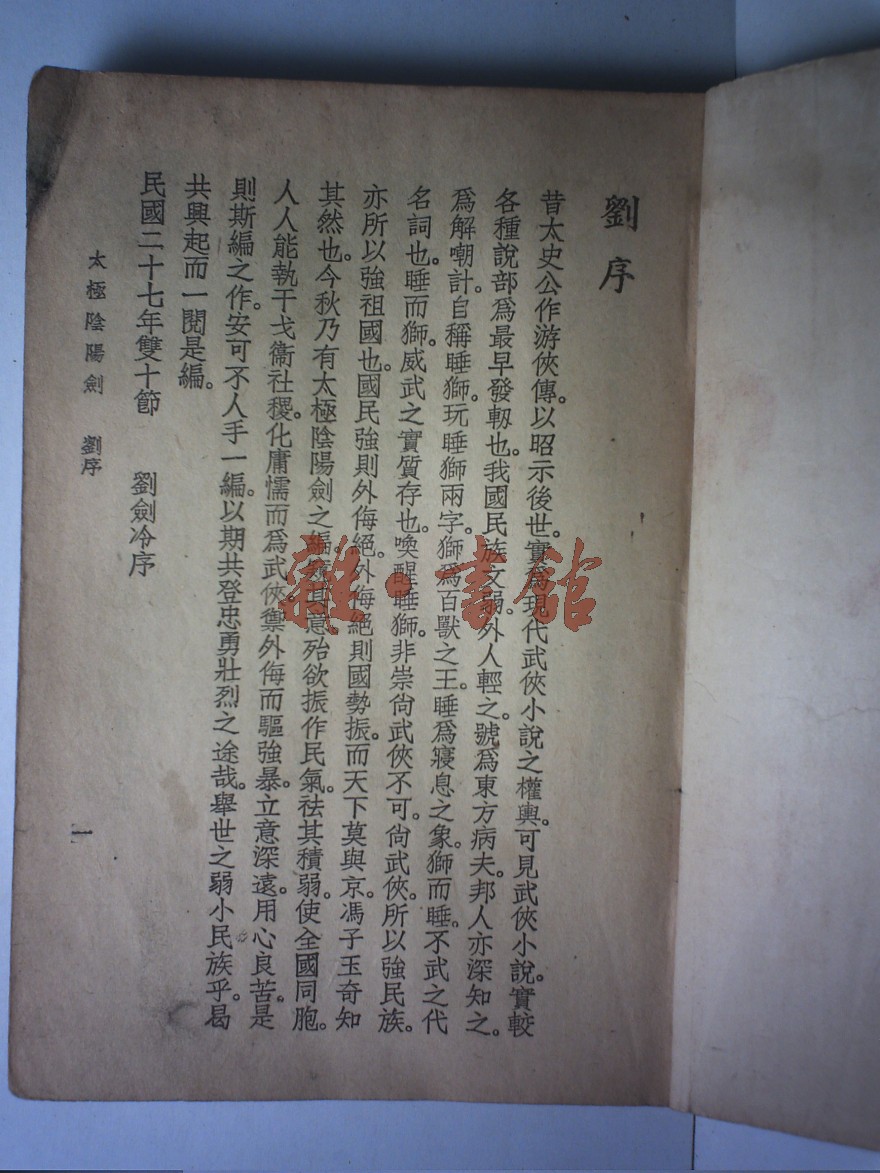 劉序
昔太史公作游俠傳。以昭示後世。實爲現代武俠小說之權輿。可見武俠小說。實較
各種說部爲最早發軔也。我國民族文弱。外人輕之。號爲東方病夫。邦人亦深知之。
爲解嘲計。自稱睡獅。玩睡獅兩字。獅爲百獸之王。睡爲寢息之象。獅而睡。不武之代
名詞也。睡而獅。威武之實質存也。喚醒睡獅。非崇尙武俠不可。尙武俠。所以強民族。
亦所以強祖國也。國民強則外侮絕。外侮絕則國勢振。而天下莫與京。馮子玉奇知
其然也。今秋乃有太極陰陽劍之編。其意殆欲振作民氣。祛其積弱。使全國同胞。
人人能執干戈衞社稷。化庸懦而爲武俠。禦外侮而驅強暴。立意深遠。用心良苦。是
則斯編之作。安可不人手一編。以期共登忠勇壯烈之途哉。舉世之弱小民族乎。曷
共興起而一閱是編。
民國二十七年雙十節 劉劍冷序
太極陰陽劍 劉序
一
雜·書館